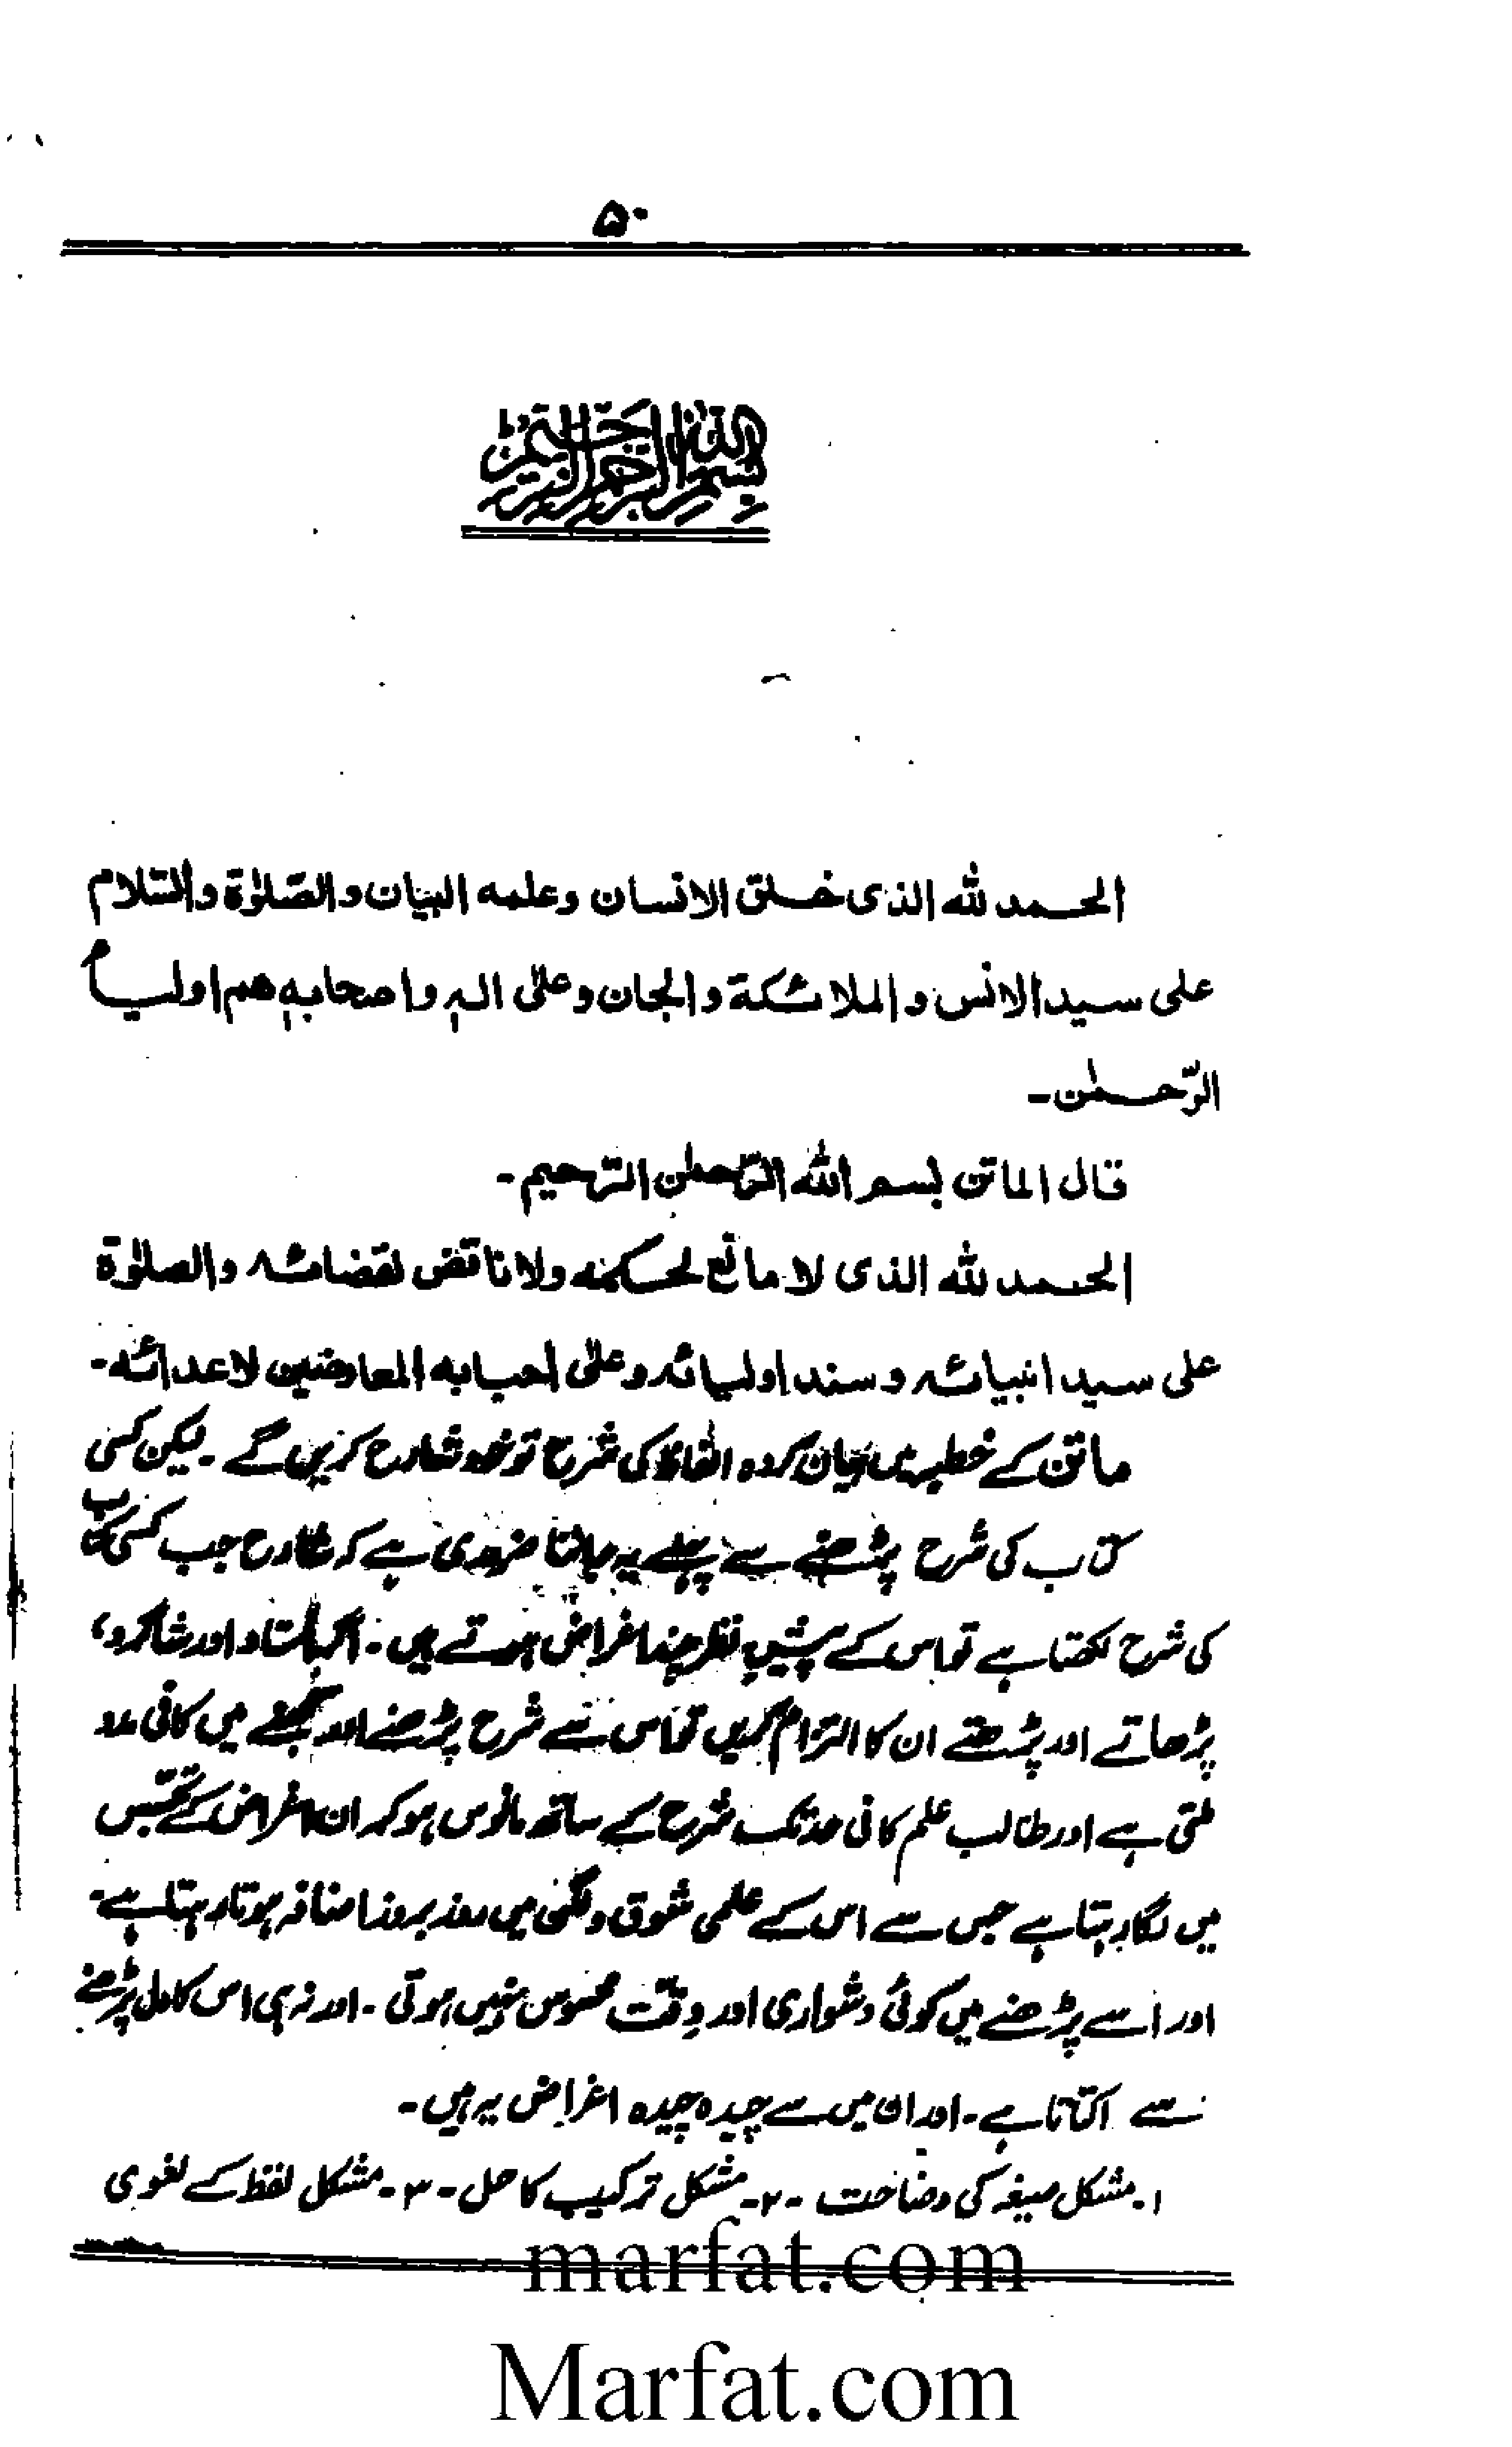 ۵۰
بسم الله الرحمن الرحيم
الحمد لله الذی خلق الانسان وعلمه البیان والصّلوٰة والسّلام
علی سید الانس والملائکة والجان وعلیٰ الہٖ واصحابہٖ هم اولیاء
الرّحمٰن۔
قال الماتن بسم الله الرّحمٰن الرّحیم۔
الحمد لله الذی لا مانع لحکمه ولا ناقض لقضائه والصلوٰة
علی سید انبیائه وسند اولیائه وعلیٰ احبابه المعارضین لاعدائه۔
ماتن کے خطبہ میں بیان کردہ الفاظ کی شرح تو خود شارح کریں گے۔ لیکن کسی
کتاب کی شرح پڑھنے سے پہلے یہ جاننا ضروری ہے کہ شارح جب کسی کتاب
کی شرح لکھتا ہے تو اس کے پیشِ نظر چند اغراض ہوتے ہیں۔ اگر استاد اور شاگرد،
پڑھاتے اور پڑھتے ان کا التزام کریں تو اس سے شرح پڑھنے اور سمجھنے میں کافی مدد
ملتی ہے اور طالب علم کافی حد تک شرح کے ساتھ مانوس ہو کر ان اغراض کے تجسّس
میں لگا رہتا ہے جس سے اس کے علمی شوق و لگن میں روز بروز اضافہ ہوتا رہتا ہے۔
اور اسے پڑھنے میں کوئی دشواری اور دِقّت محسوس نہیں ہوتی۔ اور نہ ہی اس کا دل پڑھنے
سے اکتاتا ہے۔ اور ان میں سے چیدہ چیدہ اغراض یہ ہیں۔
۱۔ مشکل صیغہ کی وضاحت ۔۲۔ مشکل ترکیب کا حل۔ ۳۔ مشکل لفظ کے لغوی
marfat.com
Marfat.com